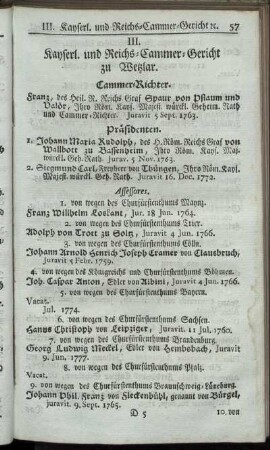 III. Kayserl. und Reichs-Cammer-Gericht ꝛc. 57
III.
Kayserl. und Reichs-Cammer-Gericht
zu Wetzlar.
Cammer-Richter.
Franz, des Heil. R. Reichs Graf Spaur von Pflaum und
Valör, Ihro Röm. Kays. Majest. würkl. Geheim. Rath
und Cammer-Richter. Juravit 5 Sept. 1763.
Präsidenten.
1. Johann Maria Rudolph, des H. Röm. Reichs Graf von
Wallbott zu Bassenheim, Ihro Röm. Kays. Maj.
würckl. Geh. Rath. Jurav. 5 Nov. 1763.
2. Siegmund Carl, Freyherr von Thüngen, Ihro Röm. Kays.
Majest. würckl. Geh. Rath. Juravit 16. Dec. 1772.
Assessores.
1. von wegen des Churfürstenthums Mayntz.
Franz Wilhelm Loskant, Jur. 18 Jun. 1764.
2. von wegen des Churfürstenthums Trier.
Adolph von Trott zu Soltz, Juravit 4 Jun. 1766.
3. von wegen des Churfürstenthums Cölln.
Johann Arnold Henrich Joseph Cramer von Clausbruch,
Juravit 5 Febr. 1759.
4. von wegen des Königreichs und Churfürstenthums Böheimen.
Jos. Caspar Anton, Edler von Albini, Juravit 4 Jun. 1766.
5. von wegen des Churfürstenthums Bayern.
Vacat.
Jul. 1774.
6. von wegen des Churfürstenthums Sachsen.
Hanns Christoph von Leipziger, Juravit 11 Jul. 1760.
7. von wegen des Churfürstenthums Brandenburg.
Georg Ludwig Meckel, Edler von Hemsbach, Juravit
9. Jun. 1777.
8. von wegen des Churfürstenthums Pfaltz.
Vacat.
9. von wegen des Churfürstenthums Braunschweig-Lüneburg.
Johann Phil. Franz von Fleckenbühl, genannt von Bürgel,
juravit, 9. Sept. 1765.
D 5 10. von